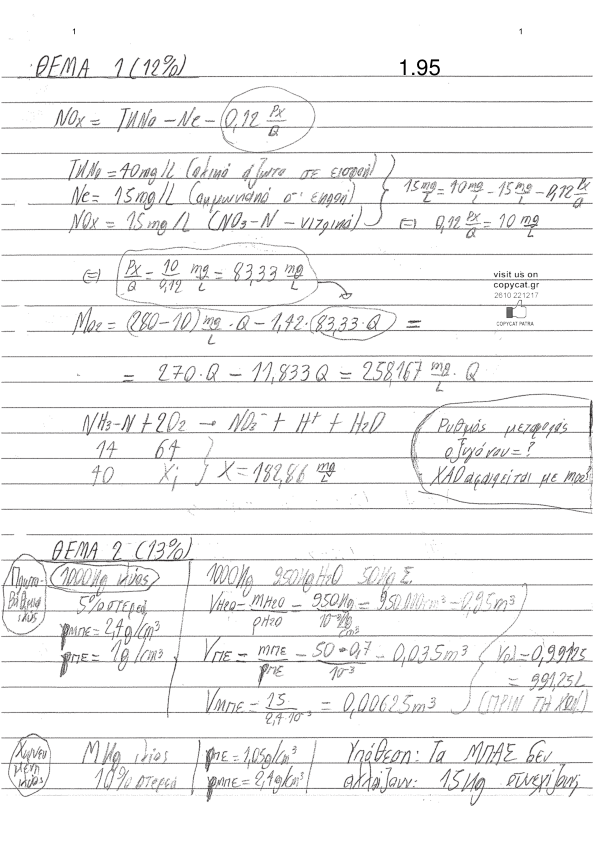 1
1
ΘΕΜΑ 1 (12%)
1.95
NOx = TKNo - Ne - 0,12 Px/Q
TKNo = 40mg/L (ολικό άζωτο σε εισροή)
Ne = 15mg/L (αμμωνιακό σε εκροή)
NOx = 15mg/L (NO3-N - νιτρικά)
15 mg/L = 40 mg/L - 15 mg/L - 0,12 Px/Q
(=) 0,12 Px/Q = 10 mg/L
(=) Px/Q = 10/0,12 mg/L = 83,33 mg/L
visit us on
copycat.gr
2610 221217
COPYCAT PATRA
Mo2 = (280-10) mg/L · Q - 1,42 · (83,33 · Q) =
= 270 · Q - 11,833 Q = 258,167 mg/L · Q
NH3-N + 2O2 → NO3⁻ + H⁺ + H2O
14 64
40 X; X = 182,86 mg/L
Ρυθμός μεταφοράς
οξυγόνου = ?
ΧΑΟ αφαιρείται με mo2?
ΘΕΜΑ 2 (13%)
Πρωτοβάθμια ιλύς
1000Kg ιλύος
5% στερεά
ρΜΠΕ = 2,4g/cm³
ρΠΕ = 1g/cm³
1000Kg 950Kg H2O 50Kg Σ.
VH2O = mH2O/ρH2O = 950Kg/10⁻³Kg/cm³ = 950.000cm³ = 0,95m³
VΠΕ = mΠΕ/ρΠΕ = 50·0,7/10⁻³ = 0,035m³
VΜΠΕ = 15/2,4·10⁻³ = 0,00625m³
Vολ = 0,99125
= 991,25L
(ΠΡΙΝ ΤΗ ΧΩΝ.)
Χωνευμένη ιλύς
M Kg ιλύος
10% στερεά
ρΠΕ = 1,05g/cm³
ρΜΠΕ = 2,4g/cm³
Υπόθεση: Τα ΜΠΑΣ δεν
αλλάζουν: 15Kg συνεχίζουν